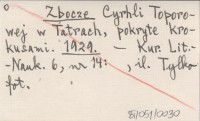 o
Zbocze Cyrhli Toporo-
wej w Tatrach, pokryte kro-
kusami. 1929. – Kur. Lit.-
-Nauk. 6, nr 14: , il. Tylko
fot.
81/051/0030